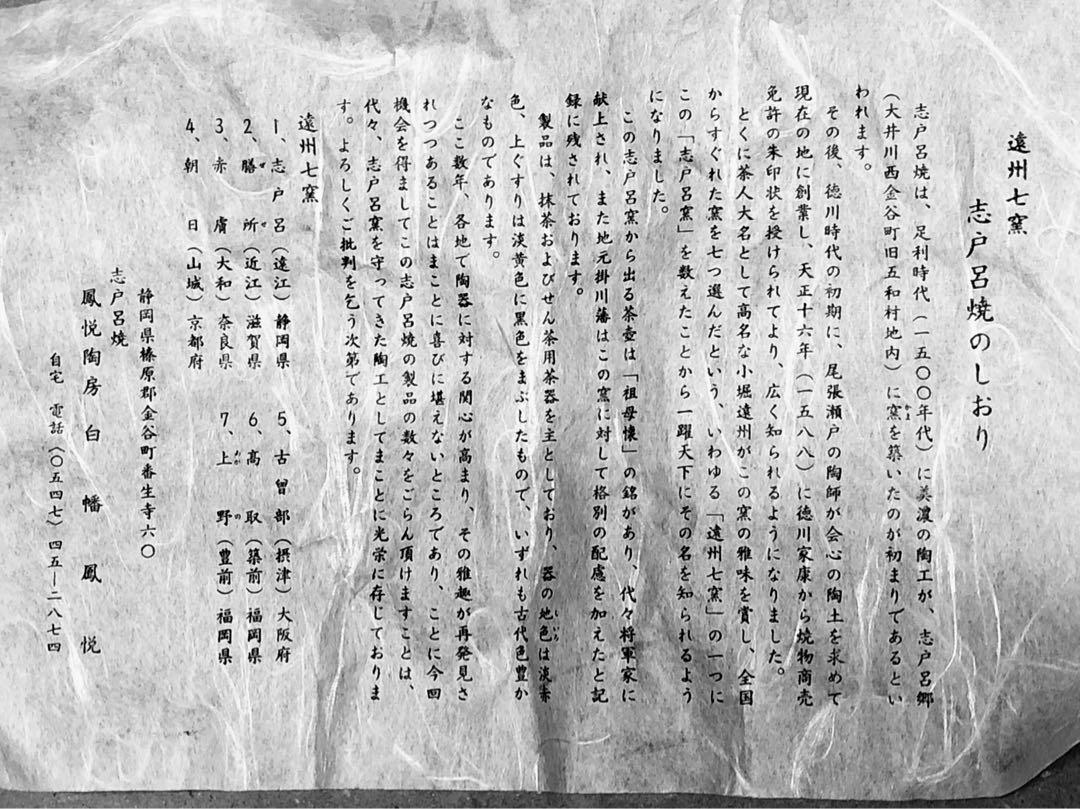 遠州七窯
志戸呂焼のしおり
志戸呂焼は、足利時代(一五〇〇年代)に美濃の陶工が、志戸呂郷
(大井川西金谷町旧五和村地内)に窯かまを築いたのが初まりであるとい
われます。
その後、徳川時代の初期に、尾張瀬戸の陶師が会心の陶土を求めて
現在の地に創業し、天正十六年(一五八八)に徳川家康から焼物商売
免許の朱印状を授けられてより、広く知られるようになりました。
とくに茶人大名として高名な小堀遠州がこの窯の雅味を賞し、全国
からすぐれた窯を七つ選んだという、いわゆる「遠州七窯」の一つに
この「志戸呂窯」を数えたことから一躍天下にその名を知られるよう
になりました。
この志戸呂窯から出る茶壺は「祖母懐」の銘があり、代々将軍家に
献上され、また地元掛川藩はこの窯に対して格別の配慮を加えたと記
録に残されております。
製品は、抹茶およびせん茶用茶器を主としており、器の地色いろは淡赤
色、上ぐすりは淡黄色に黒色をまぶしたもので、いずれも古代色豊か
なものであります。
ここ数年、各地で陶器に対する関心が高まり、その雅趣が再発見さ
れつつあることはまことに喜びに堪えないところであり、ことに今回
機会を得ましてこの志戸呂焼の製品の数々をごらん頂けますことは、
代々、志戸呂窯を守ってきた陶工としてまことに光栄に存じておりま
す。よろしくご批判を乞う次第であります。
遠州七窯
1、志戸呂(遠江)静岡県 5、古曽部(摂津)大阪府
2、膳ぜ所ぜ(近江)滋賀県 6、高取(築前)福岡県
3、赤膚(大和)奈良県 7、上あが野の(豊前)福岡県
4、朝日(山城)京都府
静岡県榛原郡金谷町番生寺六〇
志戸呂焼
鳳悦陶房 白幡鳳悦
自宅 電話(〇五四七)四五―二八七四